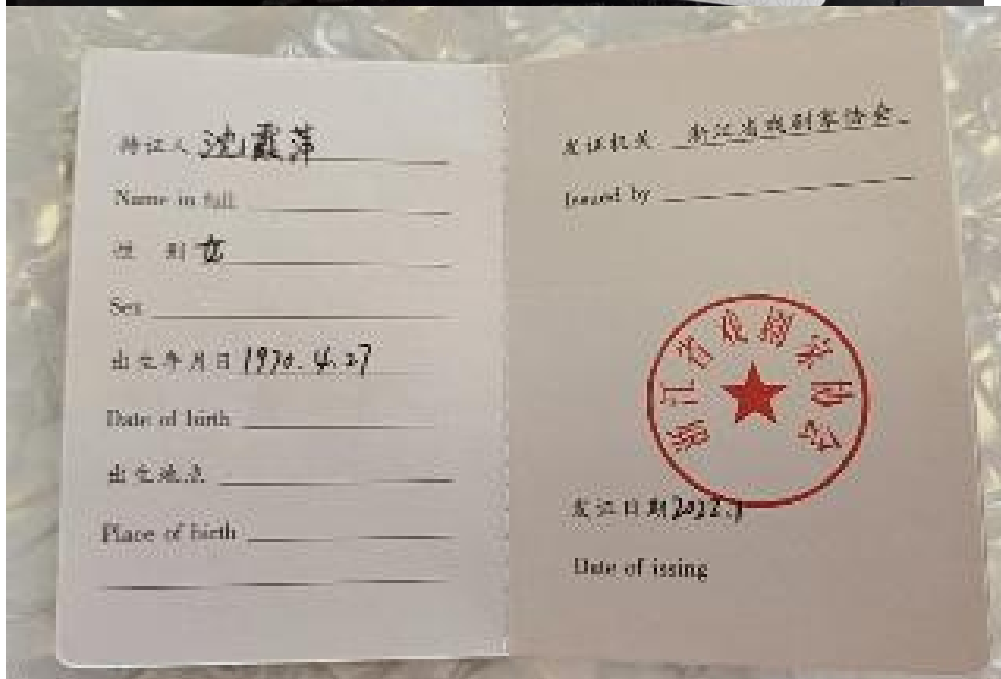 持证人 沈霞萍
Name in full
性 别 女
Sex
出生年月日 1970.4.27
Date of birth
出生地点
Place of birth
发证机关 浙江省戏剧家协会
Issued by
浙江省戏剧家协会
发证日期
Date of issing